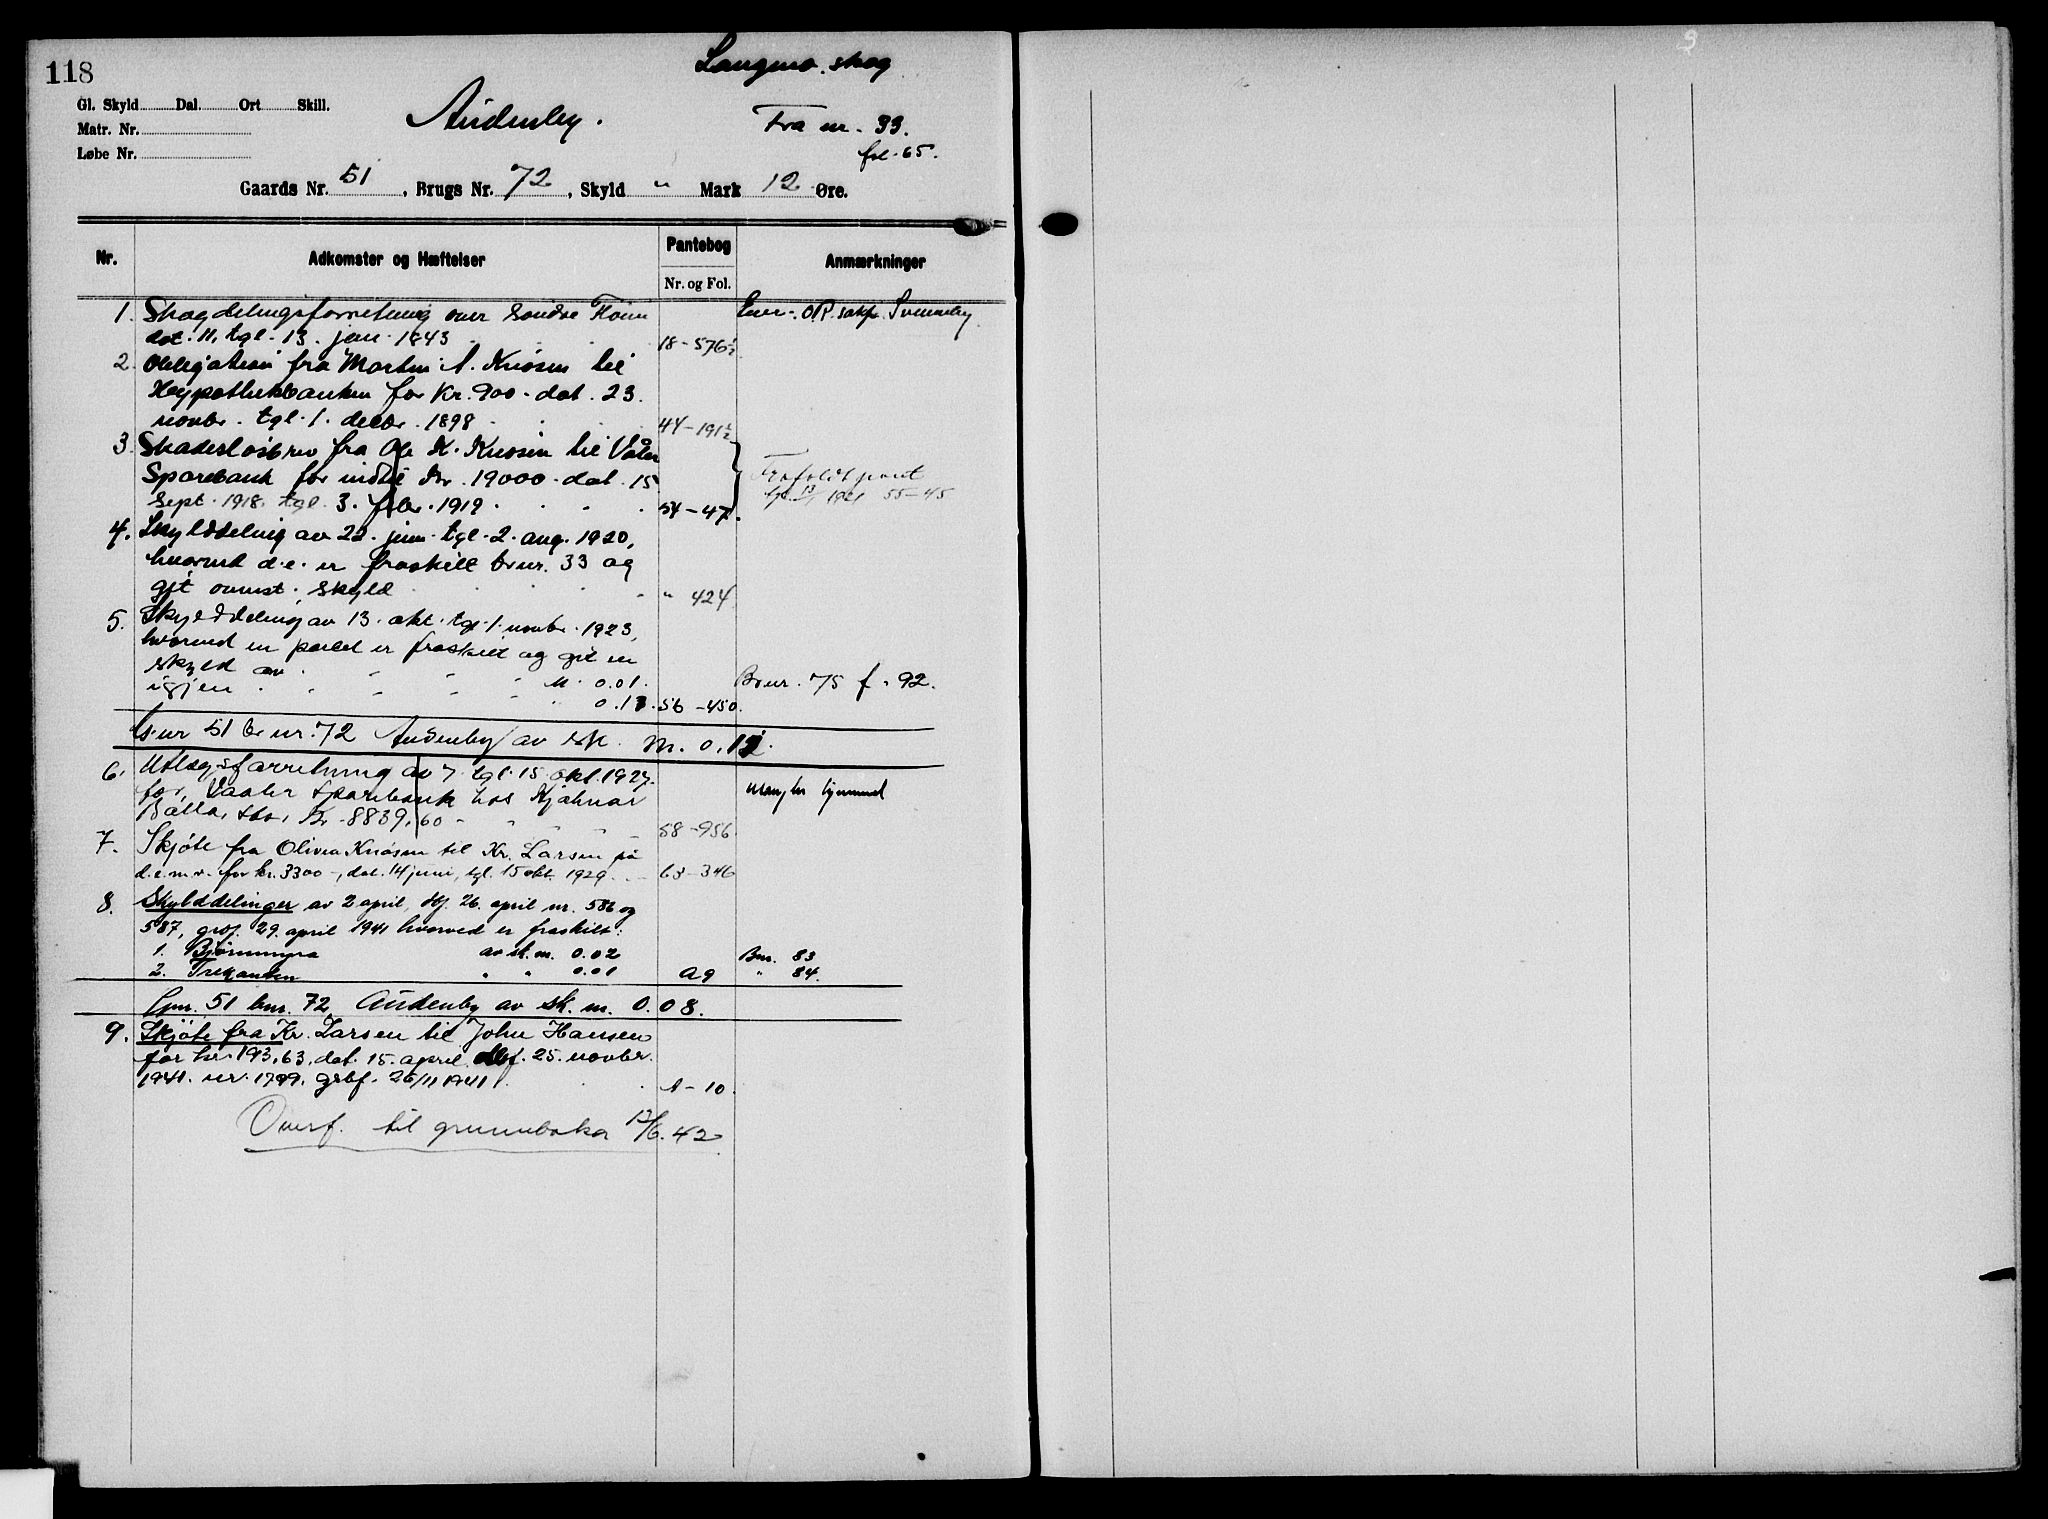 118
Langmo skog
Gl. Skyld Dal. Ort Skill.
Matr. Nr.
Løbe Nr.
Audenby.
Fra nr. 33.
fol. 65.
Gaards Nr. 51, Brugs Nr. 72, Skyld " Mark 12 Øre.
Nr. Adkomster og Hæftelser Pantebog Nr. og Fol. Anmærkninger
1. Skogdelingsforretning over søndre
dat. 11, tgl. 13. jan. 1843 18-576½
2. Obligation fra Martin A. Knosen til
Hypothekbanken for Kr. 900 - dat. 23.
novbr. tgl. 1. decbr. 1898 44-191½
3. Skadesløsbrev fra Ole K. Knosen til Våler
Sparebank for indtil Kr. 19000 - dat. 15
Sept. 1918. tgl. 3. febr. 1919. 54-47.
55-45
4. Skylddeling av 22. juni tgl. 2. aug. 1920,
hvorved d.e. er fraskilt brnr. 33 og
git ovenst. skyld " 424
5. Skylddeling av 13. okt. tgl. 1. novbr. 1923,
hvorved en parcel er fraskilt og git en
skyld av M. 0.01. Brnr. 75 f. 92.
igjen " 0.11. 56-450.
G.nr 51 br nr. 72 Audenby av sk. M. 0.11.
6. Utlægsforretning av 7. tgl. 15. okt. 1927.
for Vaaler Sparebank hos Hjalmar
Kr. 8839,60 58-956
mangler hjemmel
7. Skjøte fra Olivia Knosen til Kr. Larsen på
d.e. m.v. for kr. 3300-, dat. 14 juni, tgl. 15 okt. 1929. 63-346
8. Skylddelinger av 2 april, dbf. 26. april nr. 586 og
587, grbf. 29. april 1941 hvorved er fraskilt:
1. Bjørnmyra av sk. m. 0.02 Bnr. 83
2. Trekanten " " 0.01 A9 " 84.
Gnr. 51 bnr. 72, Audenby av sk. m. 0.08.
9. Skjøte fra Kr. Larsen til John Hansen
for kr. 193,63, dat. 15. april dbf. 25. novbr.
1941. nr. 1799. grbf. 26/11 1941. A-10.
Overf. til grunnboka 13/6. 42